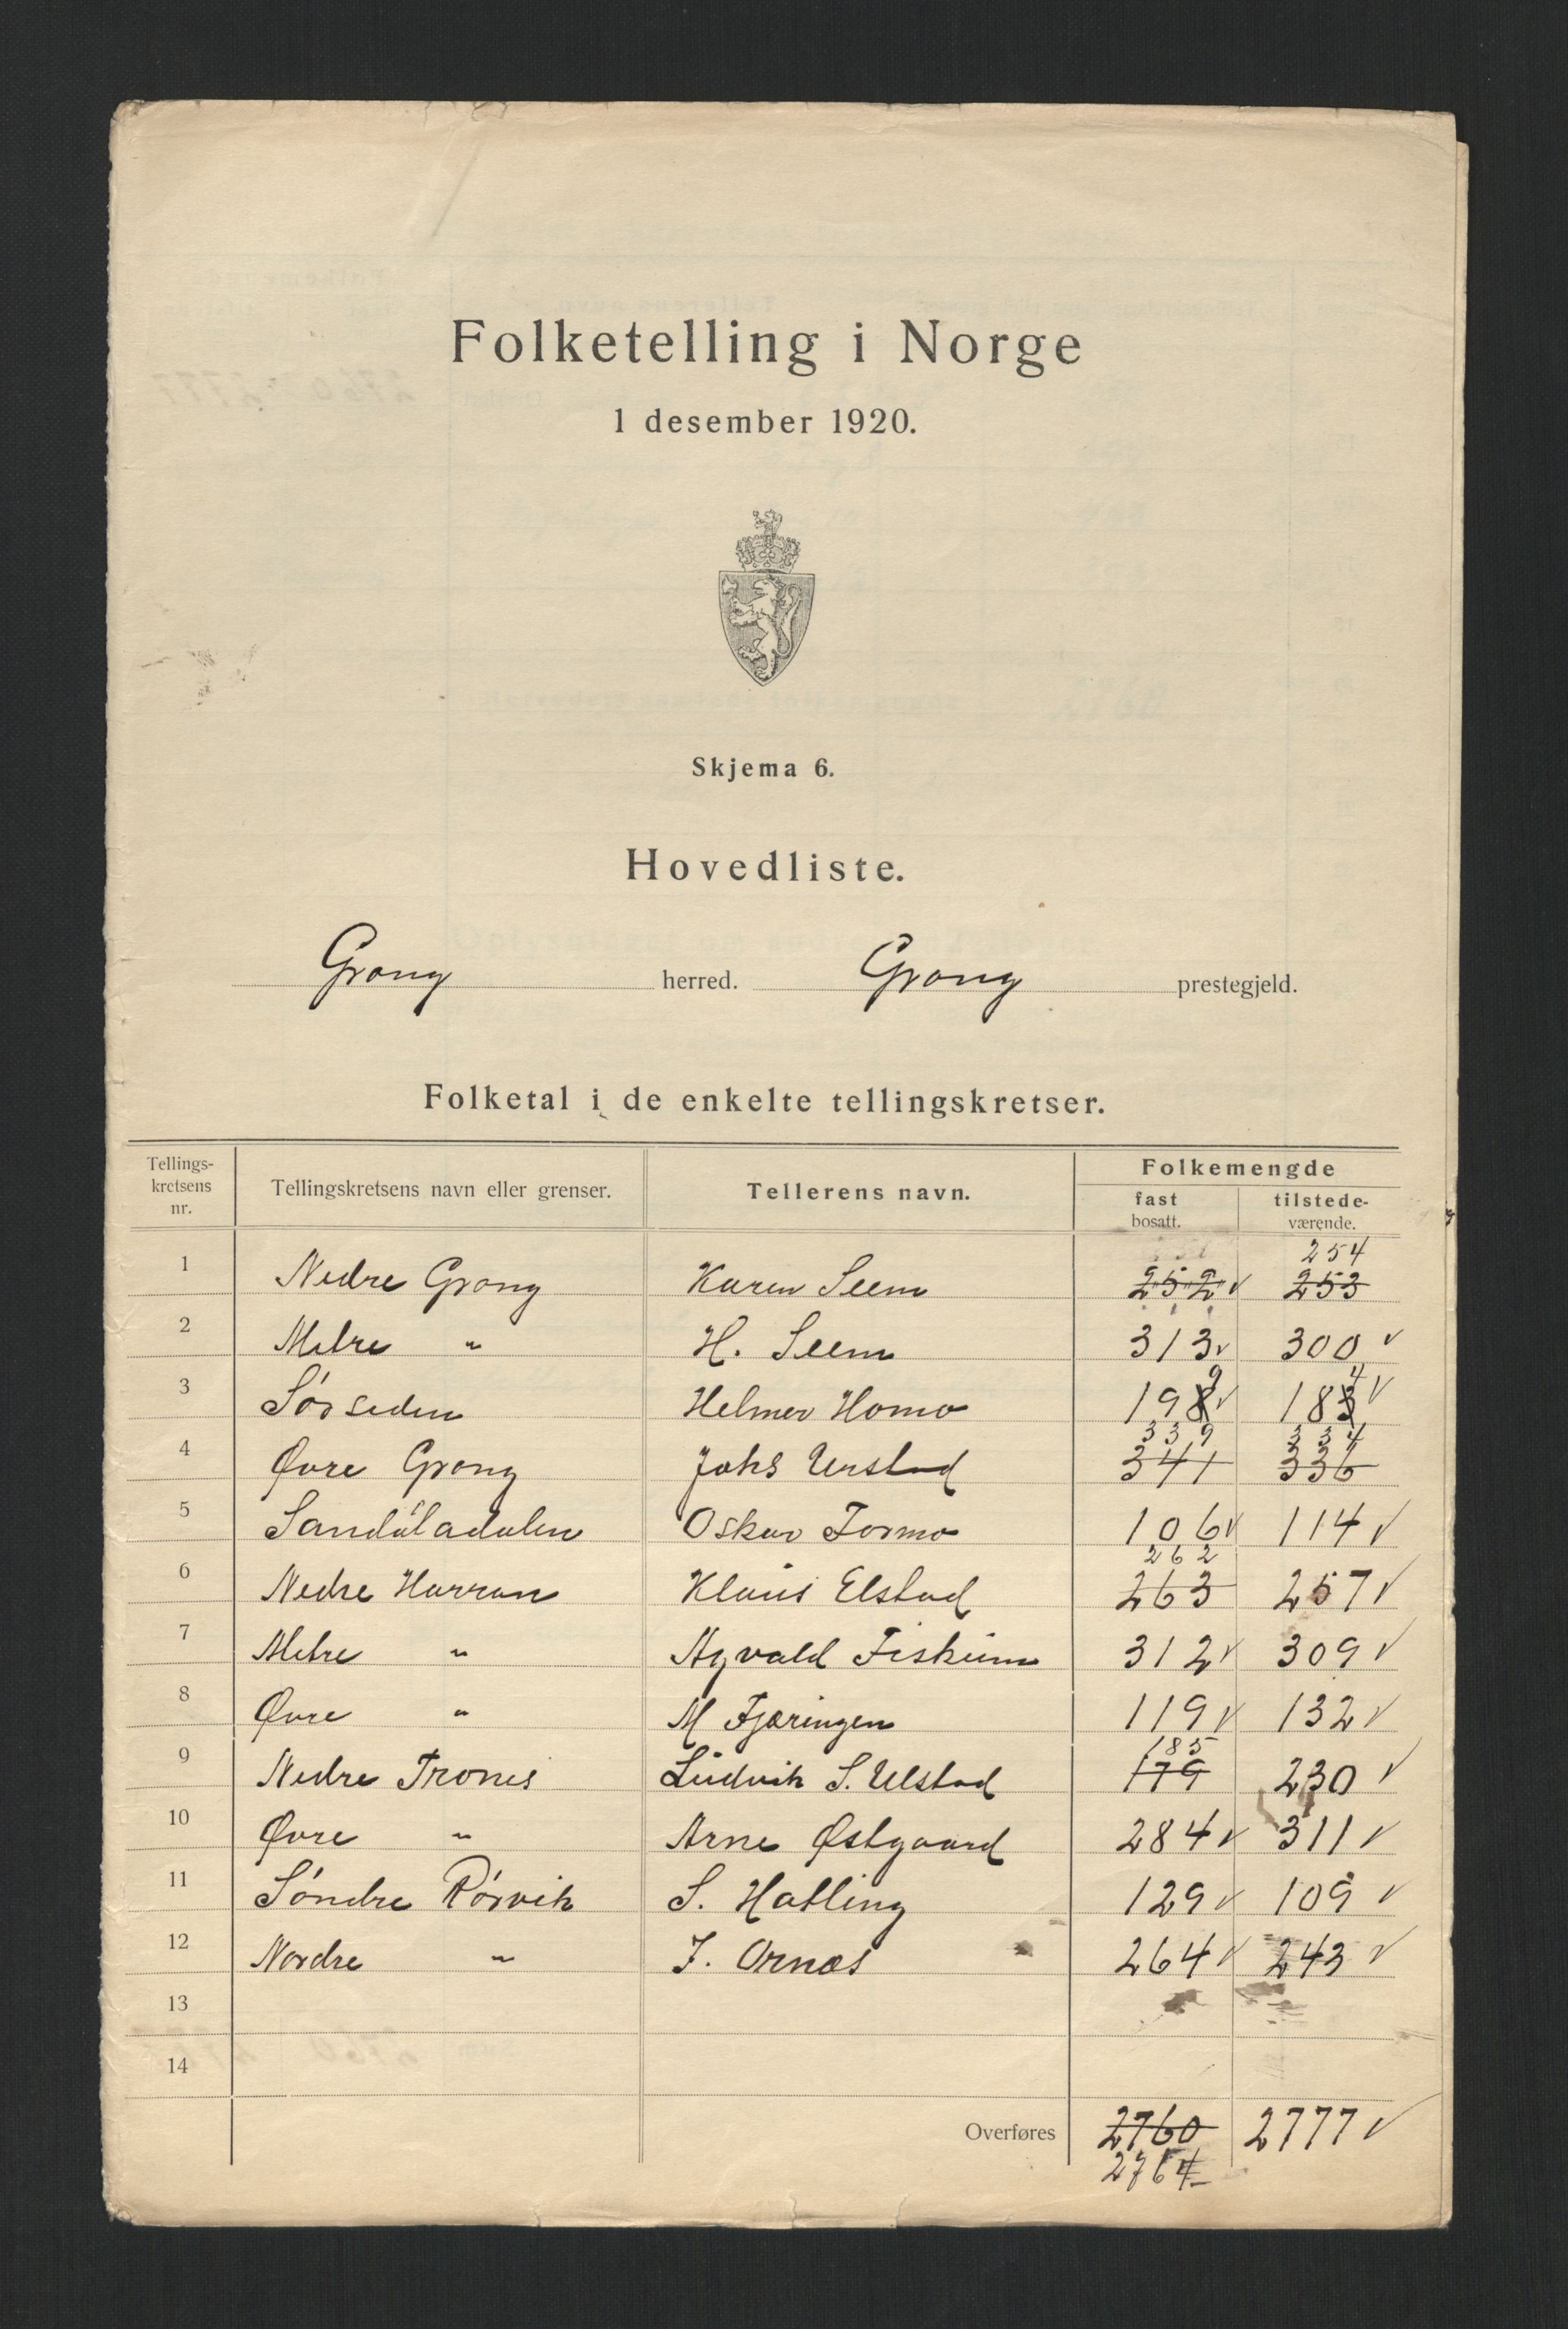 Folketelling i Norge
1 desember 1920.
Skjema 6.
Hovedliste.
Grong herred. Grong prestegjeld.
Folketal i de enkelte tellingskretser.
Tellings-kretsens nr. Tellingskretsens navn eller grenser. Tellerens navn. Folkemengde
fast bosatt. tilstede-værende.
254
1 Nedre Grong Karen Seem 252 253
2 Melre " H. Seem 313 300
9 4
3 Sørseden Helmer Homo 198 183
339 334
4 Øvre Grong Johs Urstad 341 336
5 Sandøladalen Oskar Formo 106 114
262
6 Nedre Harran Klaus Elstad 263 257
7 Melre " Agvald Fiskum 312 309
8 Øvre " M Fjæringen 119 132
185
9 Nedre Trones Ludvik S. Ulstad 179 230
10 Øvre " Arne Østgaard 284 311
11 Søndre Rørvik S. Hatling 129 109
12 Nordre " J. Ornæs 264 243
13
14
Overføres 2760 2777
2764